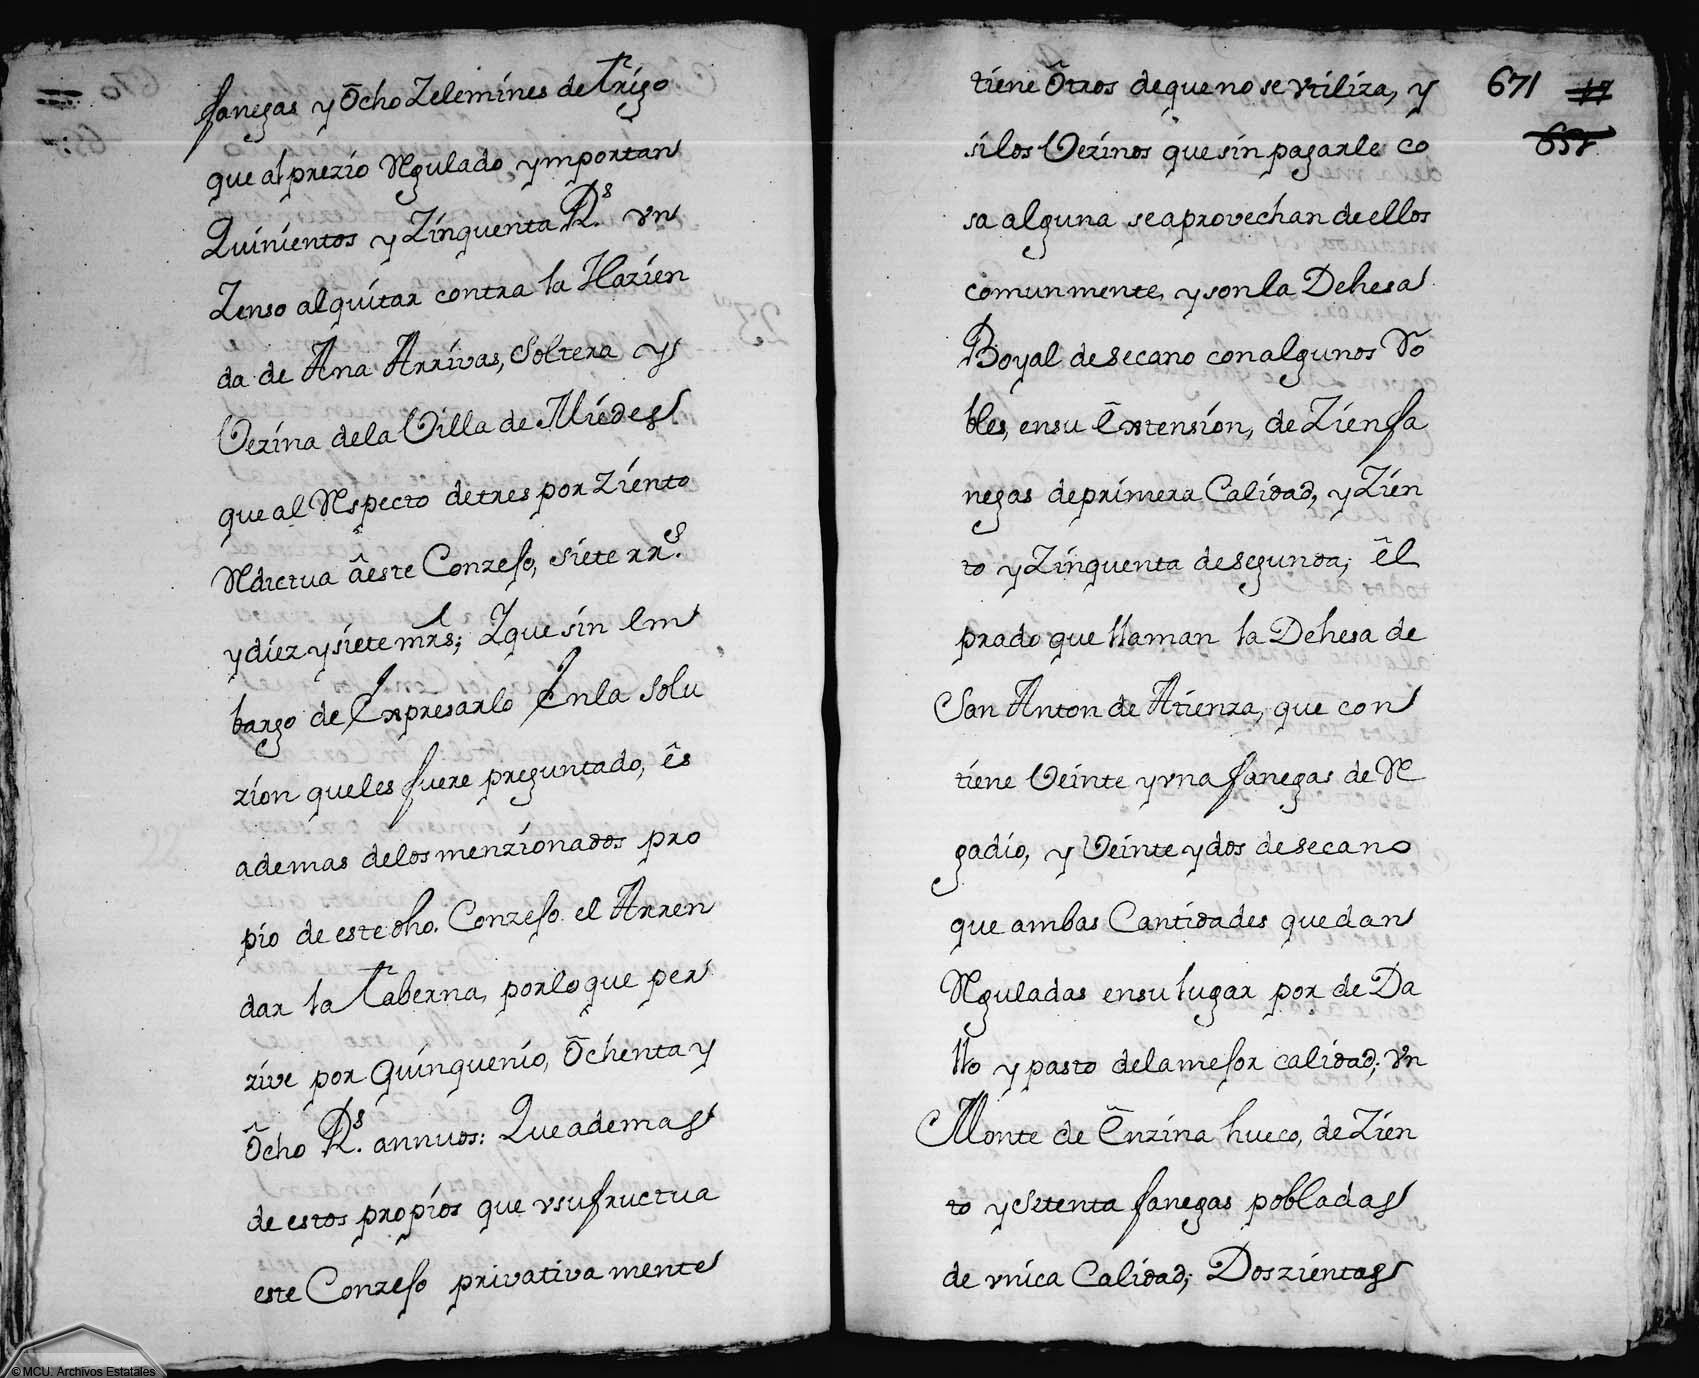 fanegas y Ôcho Zelemines de trigo
que al prezio Rgulado ymportan
Quinientos y Zinquenta Rs. vn
Zenso al quitar contra la Hazien
da de Ana Arrivas, Soltera y
Vezina dela Villa de Miedes
que al Rspecto detres por ziento
Rdictua âeste Conzejo, siete rrs.
y diez y siete mrs; Zque sin em
bargo de Expresarlo Enla Solu
zion queles fuere preguntado, ês
ademas delos menzionados pro
pio de este dho. Conzejo el Arren
dar la taberna, porlo que per
zive por quinquenio, Ôchenta y
Ôcho Rs. annuos: Que ademas
de estos propios que vsufructua
este Conzejo privativamente
tiene Ôtros dequeno se vtiliza, y
silos Vezinos que sin pagarle co
sa alguna se aprovechan de ellos
comunmente, y son la Dehesa
Boyal de secano con algunos Ro
bles, ensu Êxtension, de Zien fa
negas deprimera Calidad, y Zien
to y Zinquenta de segunda; êl
prado que llaman la Dehesa de
San Anton de Atienza, que con
tiene Veinte y vna fanegas de R
gadio, y Veinte y dos de secano
que ambas Cantidades quedan
Rguladas ensu lugar por de Da
llo y pasto delamejor calidad; vn
Monte de Ênzina hueco, de Zien
to y setenta fanegas pobladas
de vnica Calidad; Doszientas
671
17
658
© MCU. Archivos Estatales